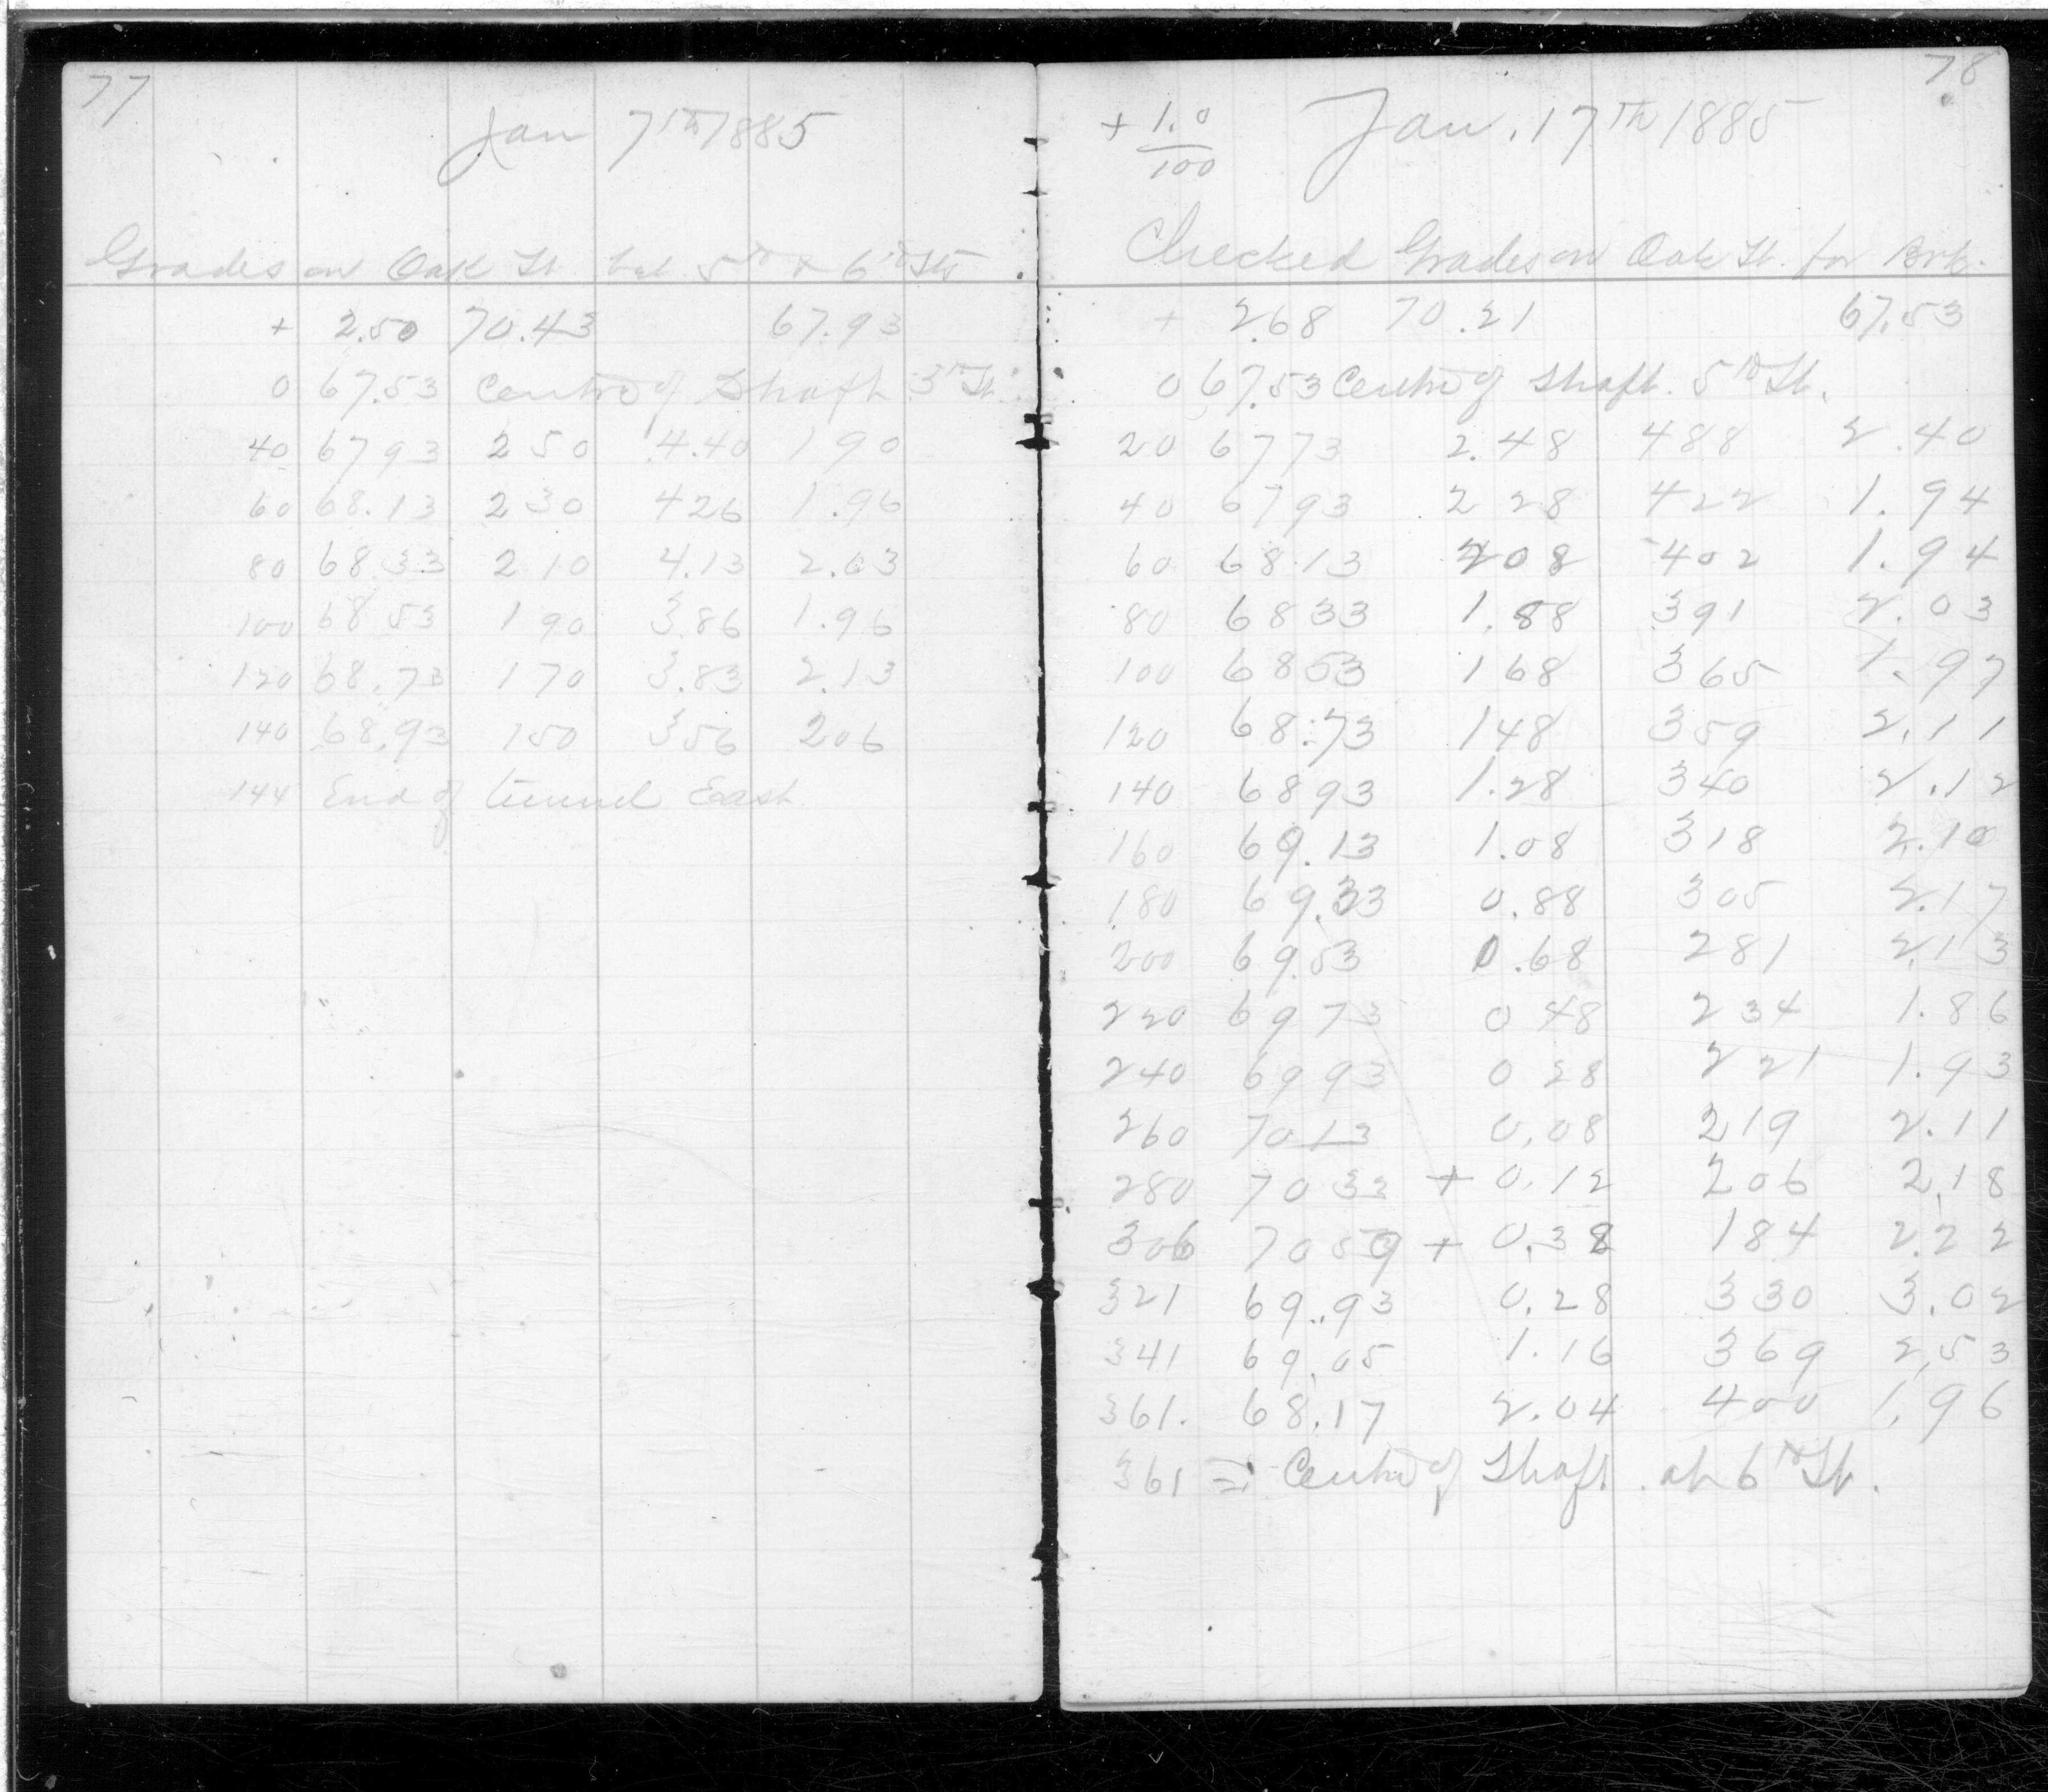 77
Jan 7th 1885
Grades on Oak St. bet 5th & 6th Sts.
+ 2.50 70.43 67.93
0 67.53 Centre of Shaft 5th St.
40 67 93 2 50 4.40 1 90
60 68.13 2 30 4 26 1.96
80 68.33 2 10 4.13 2.03
100 68 53 1 90 3.86 1.96
120 68.73 1 70 3.83 2.13
140 68.93 1 50 3 56 2 06
144 End of tunnel East
78
+ 1.0/100 Jan. 17th 1885
Checked Grades on Oak St. for Brk.
+ 2.68 70.21 67.53
0 67.53 Centre of Shaft. 5th St.
20 67 73 2.48 4 88 2.40
40 67 93 2 28 4 22 1.94
60 68 13 2 08 4 02 1.94
80 68 33 1.88 3 91 2.03
100 68 53 1 68 3 65 1.97
120 68.73 1 48 3 59 2.11
140 68 93 1.28 3 40 2.12
160 69.13 1.08 3 18 2.10
180 69.33 0.88 3 05 2.17
200 69.53 0.68 2 81 2.13
220 69 73 0 48 2 34 1.86
240 69 93 0 28 2 21 1.93
260 70 13 0.08 2 19 2.11
280 70 33 + 0.12 2 06 2.18
306 70 59 + 0.38 1 84 2.22
321 69.93 0.28 3 30 3.02
341 69.05 1.16 3 69 2.53
361. 68.17 2.04 4 00 1.96
361 = Centre of Shaft. at 6th St.